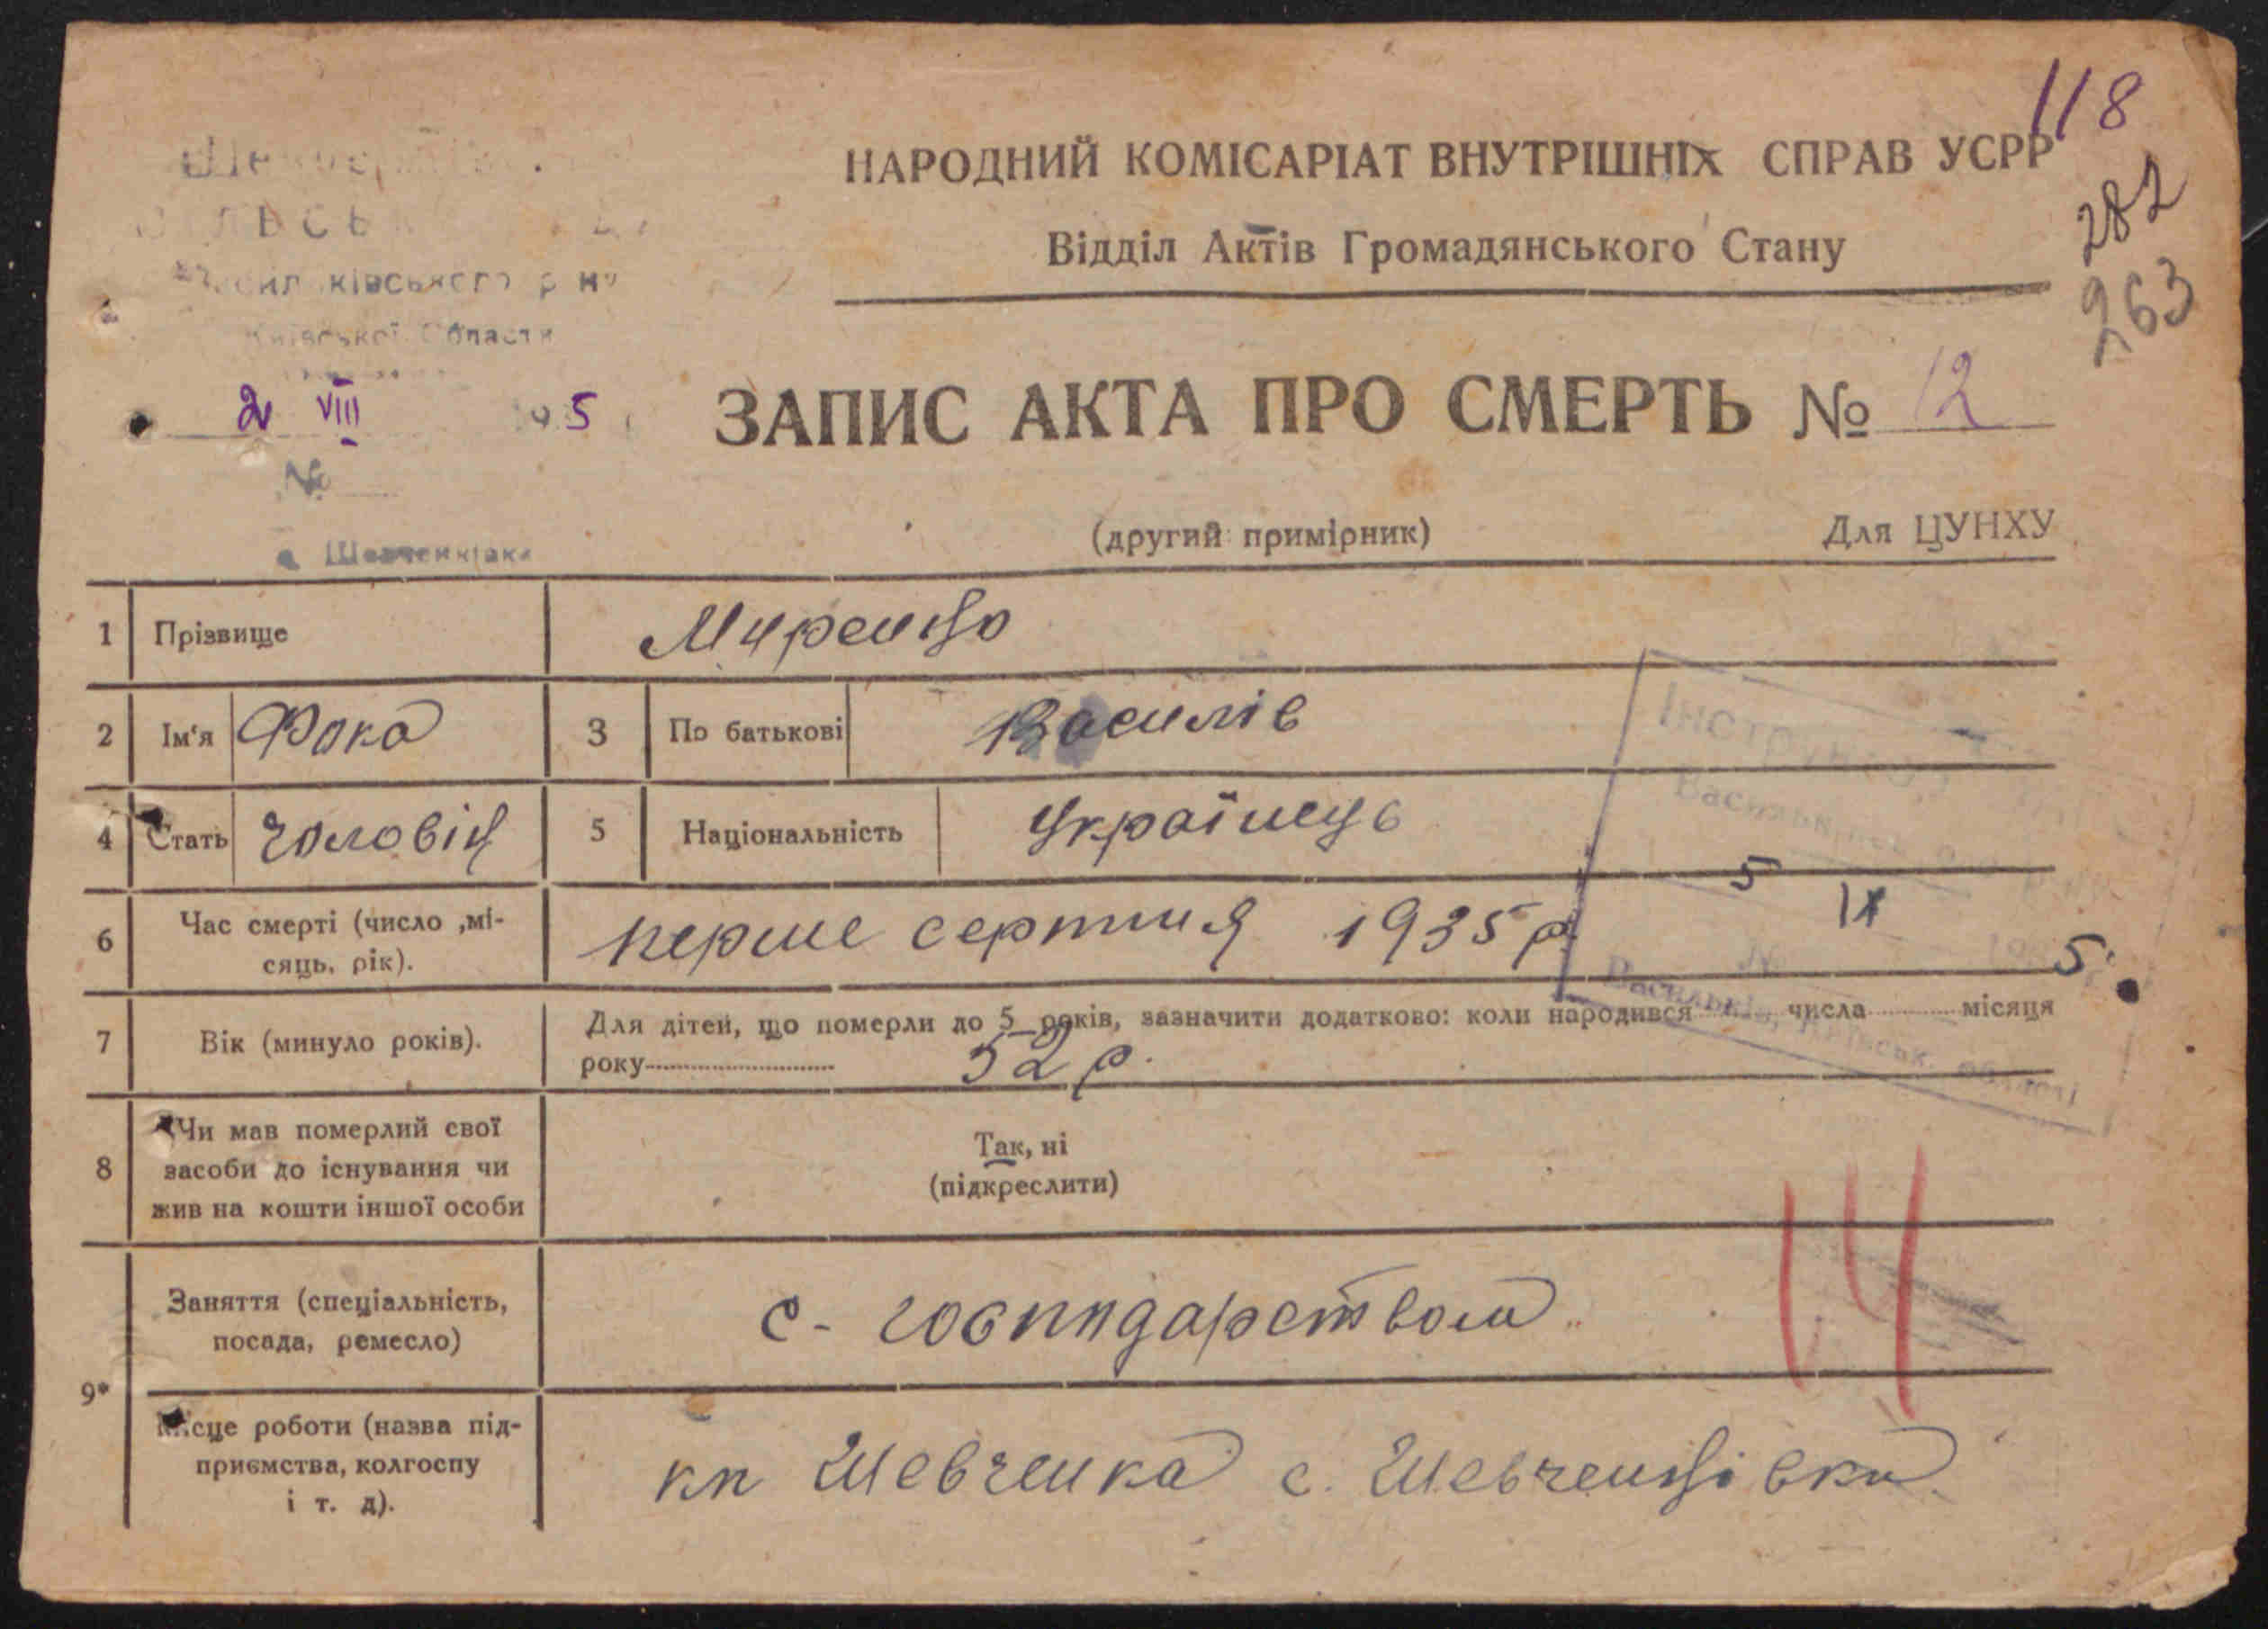 118
НАРОДНИЙ КОМІСАРІАТ ВНУТРІШНІХ СПРАВ УСРР
282
Відділ Актів Громадянського Стану
763
Київської Області
2 VIII 5
ЗАПИС АКТА ПРО СМЕРТЬ № 12
№
(другий примірник) Для ЦУНХУ
Шевченківка
1 Прізвище Миренко
2 Ім'я Фока 3 По батькові Василів
4 Стать чоловік 5 Національність Українець
6 Час смерті (число ,мі-
сяць, рік). перше серпня 1935 р
5 IX
5
7 Вік (минуло років). Для дітей, що померли до 5 років, зазначити додатково: коли народився числа місяця
року 52 р.
8 Чи мав померлий свої
засоби до існування чи
жив на кошти іншої особи
Так, ні
(підкреслити)
9* Заняття (спеціальність,
посада, ремесло)
с- господарством
Місце роботи (назва під-
приємства, колгоспу
і т. д).
кп Шевченка с. Шевченківка